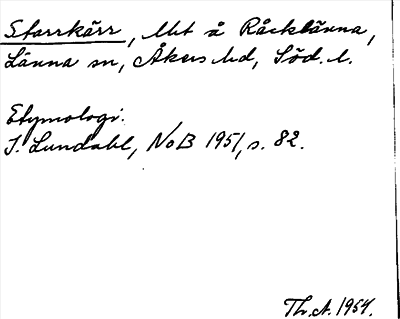 Starrkärr, lht å Räcklänna,
Länna sn, Åkers hd, Söd. l.
Etymologi:
I. Lundahl, NoB 1951, s. 82.
Th. A. 1954.